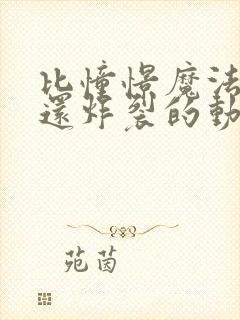 比憧憬魔法
還炸裂的動
苑茵